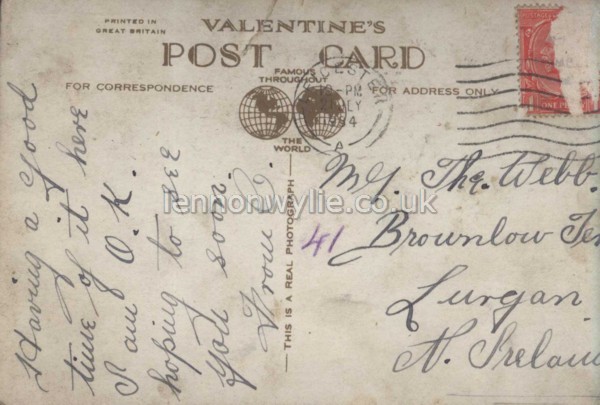 PRINTED IN
GREAT BRITAIN
VALENTINE'S
POST CARD
FOR CORRESPONDENCE
FAMOUS
THROUGHOUT
THE
WORLD
FOR ADDRESS ONLY
THIS IS A REAL PHOTOGRAPH
PM
1934
A
Having a Good
time of it here
I am O.K.
hoping to see
you soon.
From D.
41
Mr Tho. Webb.
Brownlow Ter
Lurgan
N. Ireland
lennonwylie.co.uk